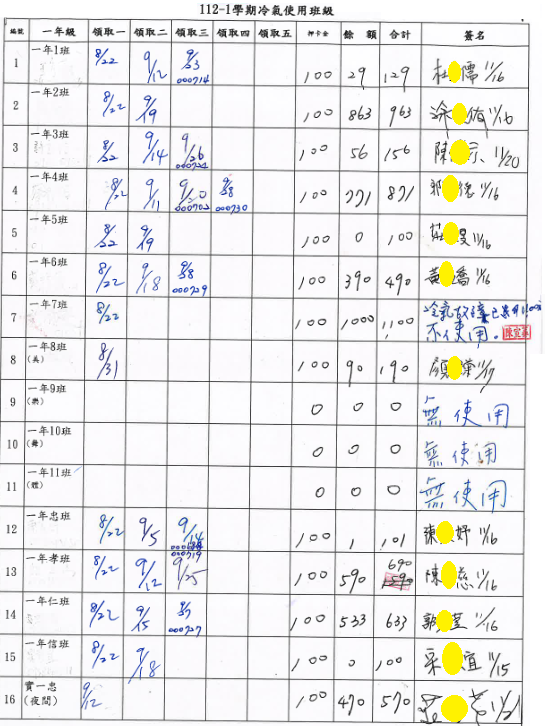 112-1學期冷氣使用班級
編號 一年級 領取一 領取二 領取三 領取四 領取五 押卡金 餘額 合計 簽名
1 一年1班 8/22 9/12 9/23 000714 100 29 129 杜 儒 11/16
2 一年2班 8/22 9/19 100 863 963 涂 11/16
3 一年3班 8/22 9/14 9/26 100 56 156 陳 宗 11/20
4 一年4班 8/22 9/11 000702 000730 100 771 871 郭 德 11/16
5 一年5班 8/22 9/19 100 0 100 莊 11/16
6 一年6班 8/22 9/18 000729 100 390 490 黃 喬 11/16
7 一年7班 8/22 100 1000 1100 冷氣故障
不使用。
8 一年8班 (美) 8/31 100 90 190 顏 11/17
9 一年9班 (樂) 0 0 0 無使用
10 一年10班 (舞) 0 0 0 無使用
11 一年11班 (體) 0 0 0 無使用
12 一年忠班 8/22 9/5 9/14 100 1 101 陳 妤 11/16
13 一年孝班 8/22 9/12 000719 9/25 100 590 690 陳 慈 11/16
14 一年仁班 8/22 9/15 000727 100 533 633 郭 11/16
15 一年信班 8/22 9/18 100 0 100 采 宜 11/15
16 實一忠 (夜間) 9/12 100 470 570 11/21